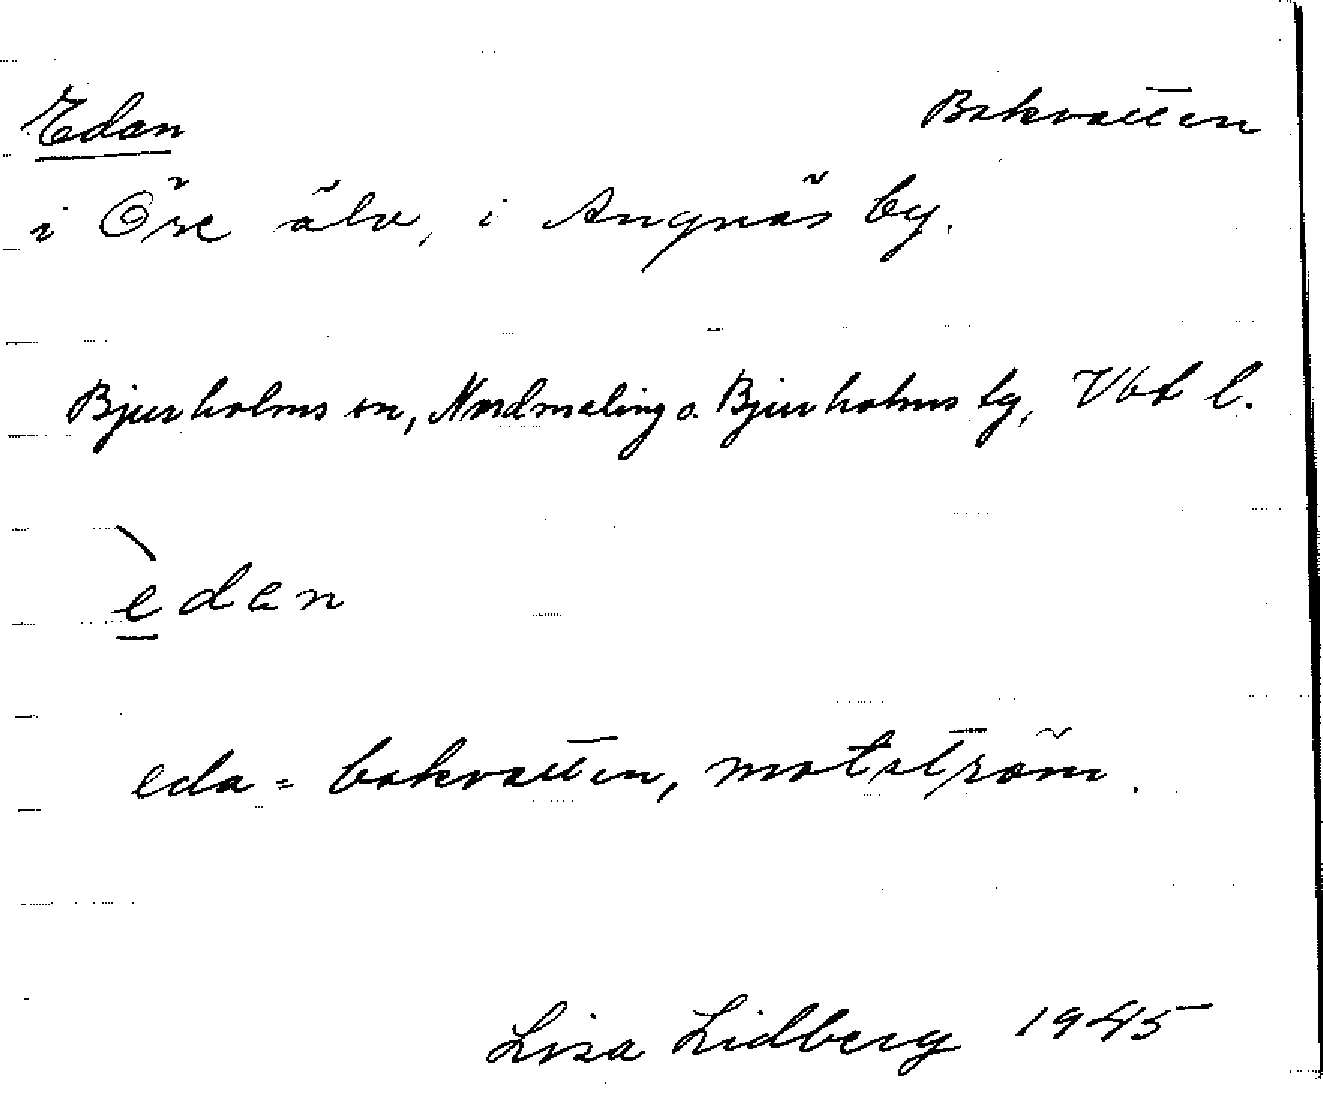 Edan Bakvatten
i Öre älv, i Angnäs by.
Bjurholms sn, Nordmaling o. Bjurholms tg, Vbt l.
è̱dan
eda = bakvatten, motström.
Lisa Lidberg 1945